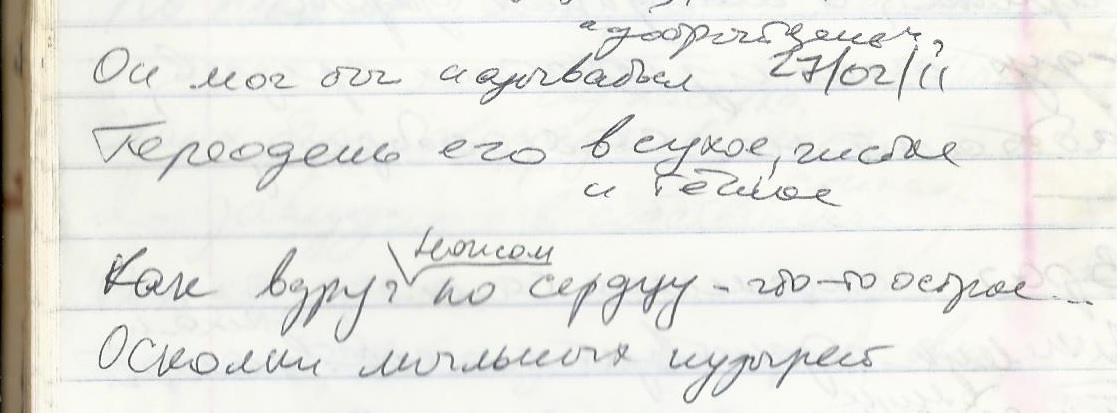 Он мог бы называться 27/02/11
Переодень его в сухое, чистое
и тёплое
ножом
Как вдруг по сердцу - что-то острое...
Осколки мыльных пузырей